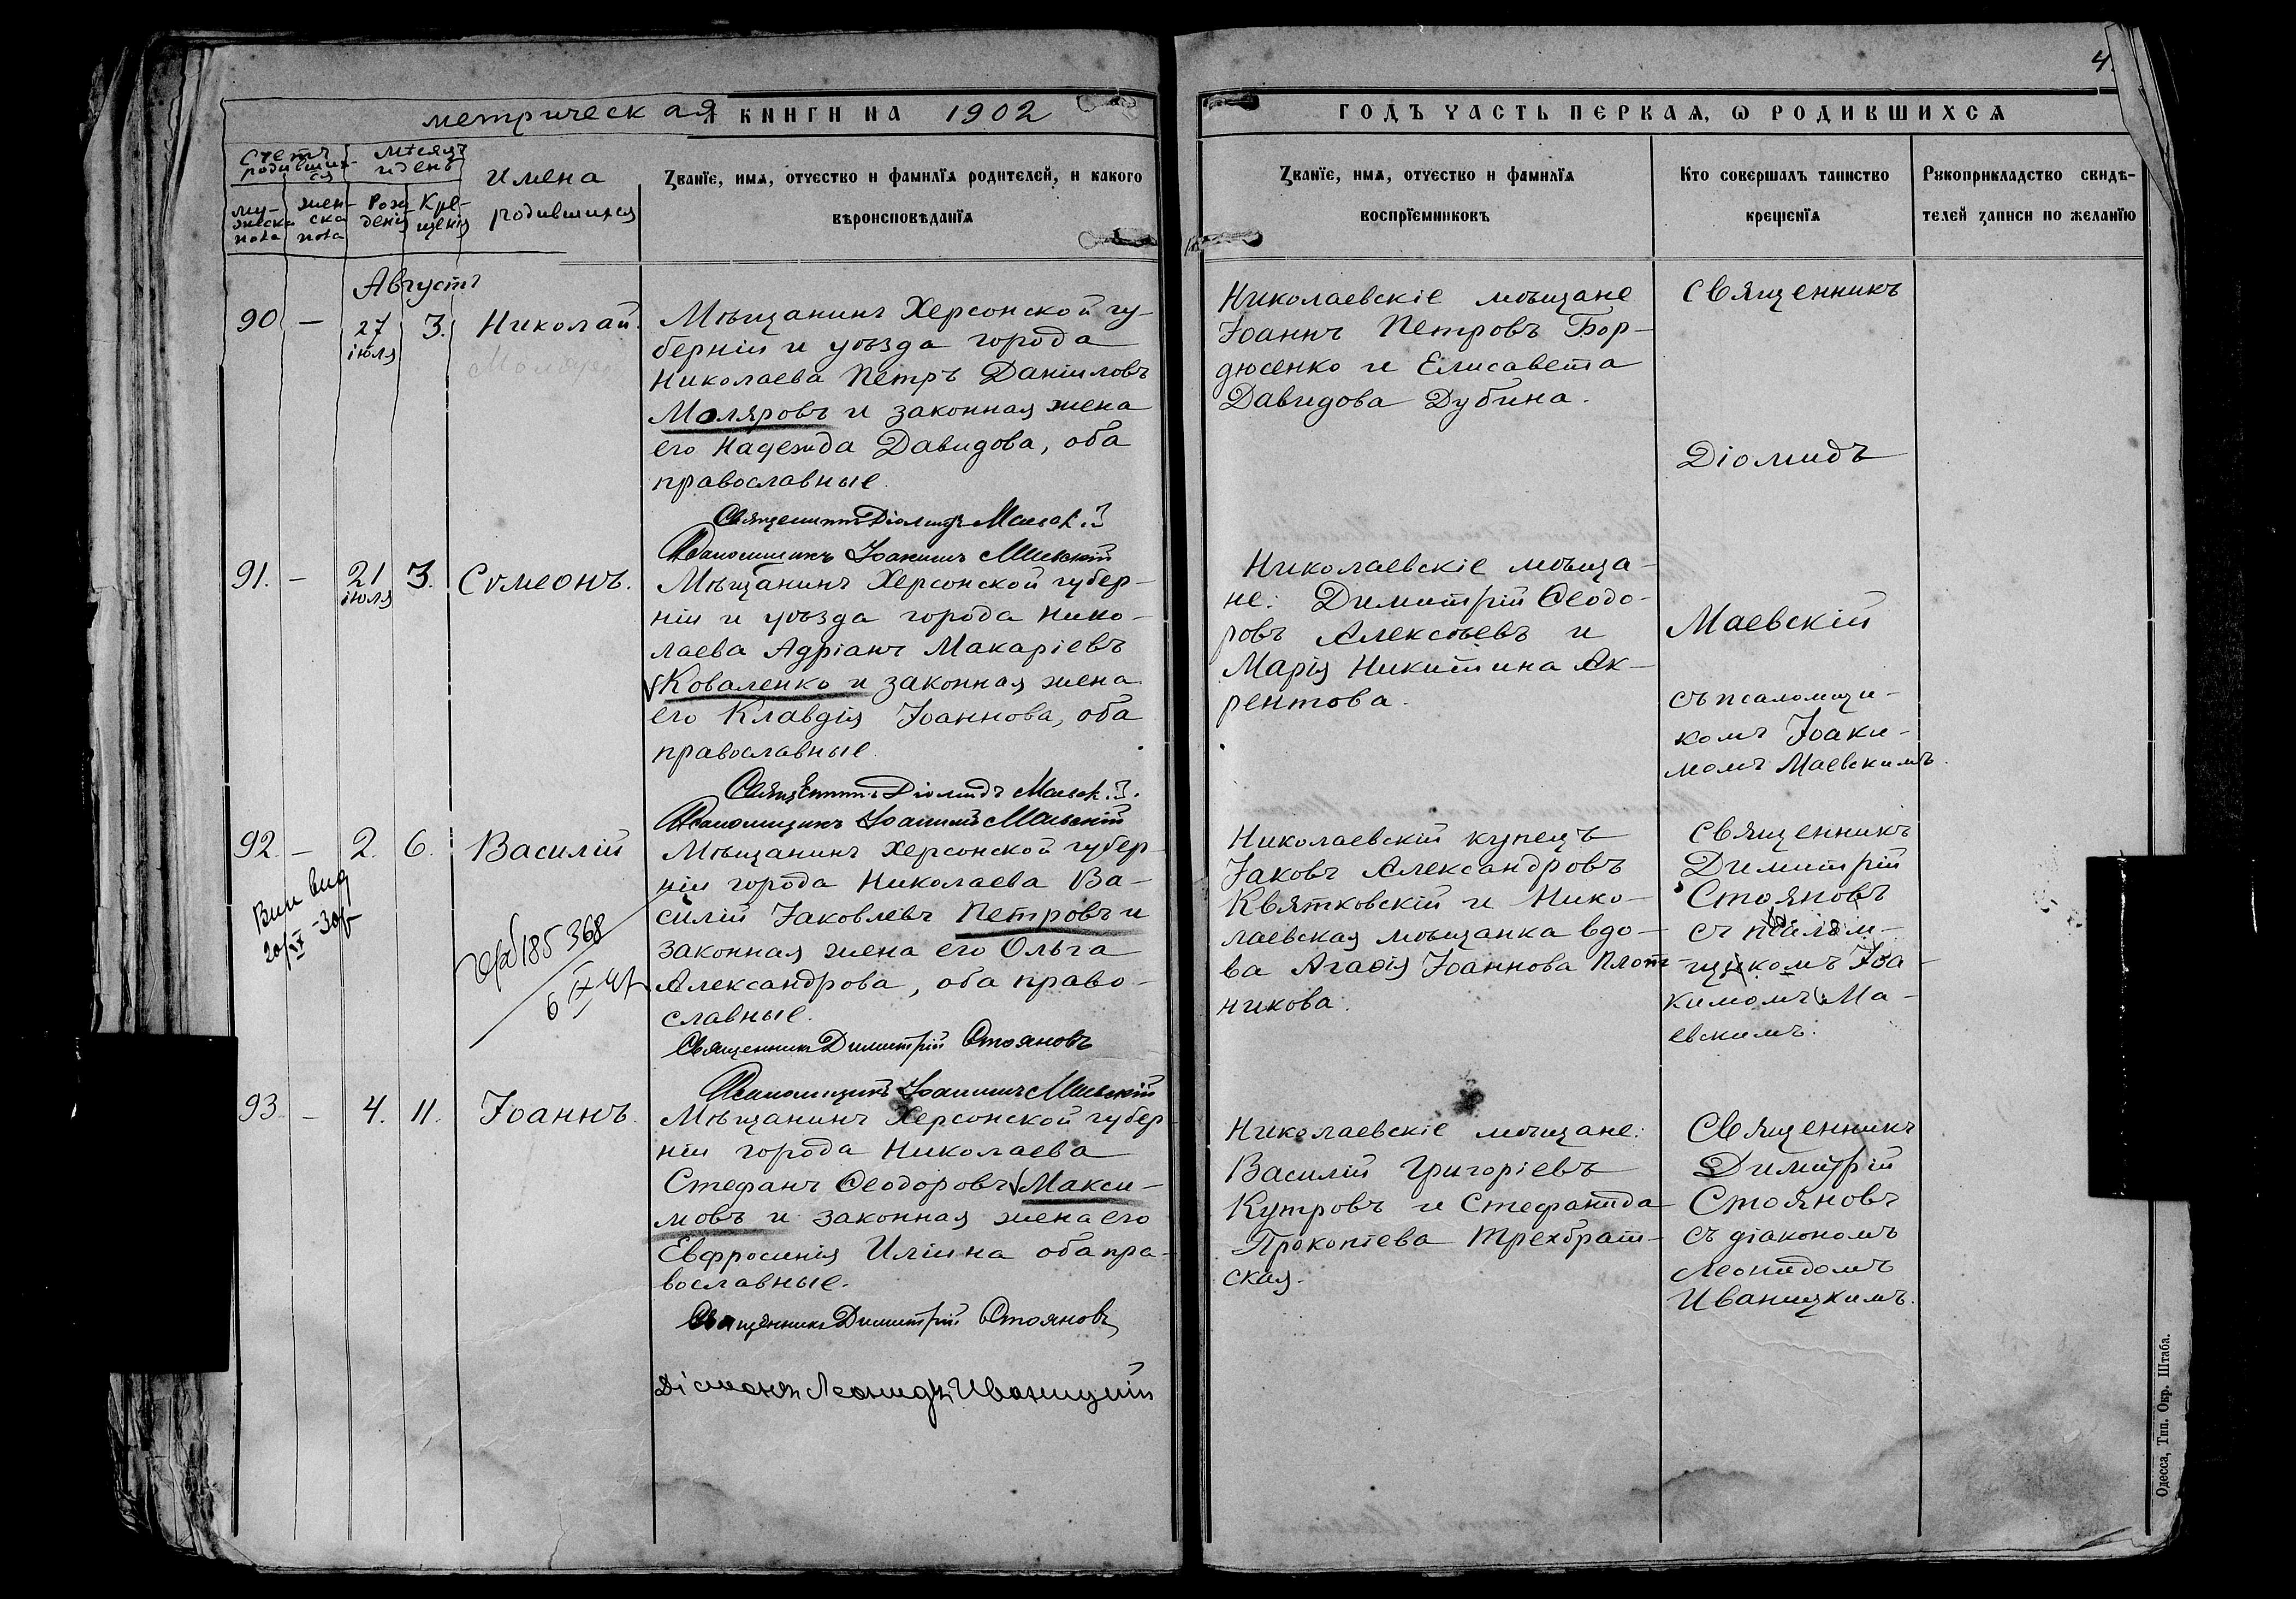 4
метрическая КНИГИ НА 1902
ГОДЪ ЧАСТЬ ПЕРВАЯ, Ѡ РОДИВШИХСЯ
Счетъ родившихся
мужеска пола
женска пола
Мѣсяцъ и день
Рожденія
Крещенія
Имена
родившихся
Званїе, имя, отчество и фамилїя родителей, и какого
вѣроисповѣданїя
Званїе, имя, отчество и фамилїя
воспрїемниковъ
Кто совершалъ таинство
крещенїя
Рукоприкладство свидѣ-
телей записи по желанїю
Августъ
90 — 27 іюля 3. Николай.
Мѣщанинъ Херсонской гу-
берніи и уѣзда города
Николаева Петръ Даніиловъ
Моляровъ и законная жена
его Надежда Давидова, оба
православные.
Священникъ Діомидъ Маевскій
Псаломщикъ Іоакимъ Маевскій
Николаевскіе мѣщане
Іоаннъ Петровъ Бор-
дюсенко и Елисавета
Давидова Дубина.
Священникъ
Діомидъ
91. — 21 іюля 3. Сѵмеонъ.
Мѣщанинъ Херсонской губер-
ніи и уѣзда города Нико-
лаева Адріанъ Макаріевъ
Коваленко и законная жена
его Клавдія Іоаннова, оба
православные.
Священникъ Діомидъ Маевскій
Псаломщикъ Іоакимъ Маевскій
Николаевскіе мѣща-
не: Димитрій Ѳеодо-
ровъ Алексѣевъ и
Марія Никитина Ак-
рентова.
Маевскій
съ псаломщи-
комъ Іоаки-
момъ Маевскимъ.
92. — 2. 6. Василій
20/IX
185368
6 IX
Мѣщанинъ Херсонской губер-
ніи города Николаева Ва-
силій Іаковлевъ Петровъ и
законная жена его Ольга
Александрова, оба право-
славные.
Священникъ Димитрій Стояновъ
Псаломщикъ Іоакимъ Маевскій
Николаевскій купецъ
Іаковъ Александровъ
Квятковскій и Нико-
лаевская мѣщанка вдо-
ва Агаѳія Іоаннова Плот-
никова.
Священникъ
Димитрій
Стояновъ
съ псалом-
щикомъ Іоа-
кимомъ Ма-
евскимъ.
93. — 4. 11. Іоаннъ.
Мѣщанинъ Херсонской губер-
ніи города Николаева
Стефанъ Ѳеодоровъ Макси-
мовъ и законная жена его
Евфросинія Иліина оба пра-
вославные.
Священникъ Димитрій Стояновъ
Діаконъ Леонидъ Иваницкій
Николаевскіе мѣщане:
Василій Григоріевъ
Кутровъ и Стефанида
Прокопіева Трехбрат-
ская.
Священникъ
Димитрій
Стояновъ
съ діакономъ
Леонидомъ
Иваницкимъ.
Одесса, Тип. Окр. Штаба.